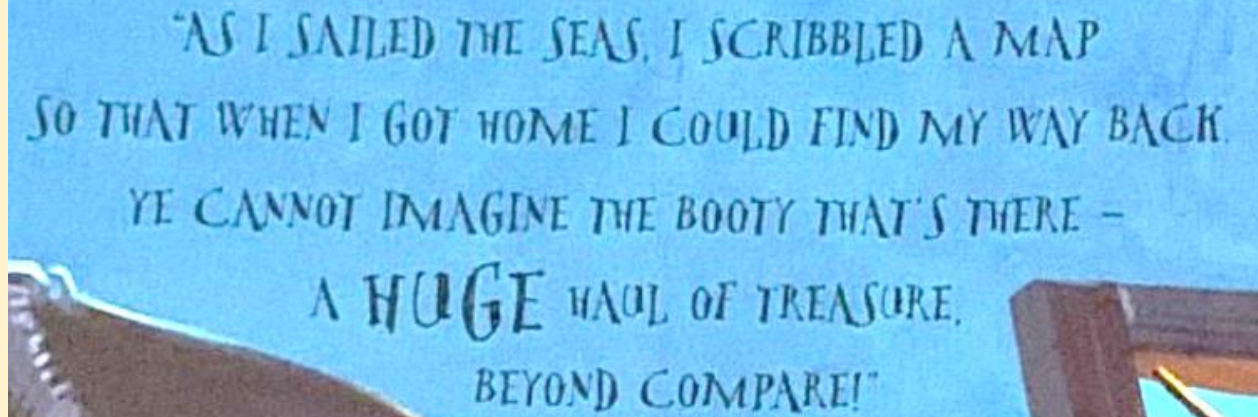 "AS I SAILED THE SEAS, I SCRIBBLED A MAP
SO THAT WHEN I GOT HOME I COULD FIND MY WAY BACK.
YE CANNOT IMAGINE THE BOOTY THAT'S THERE –
A HUGE HAUL OF TREASURE,
BEYOND COMPARE!"